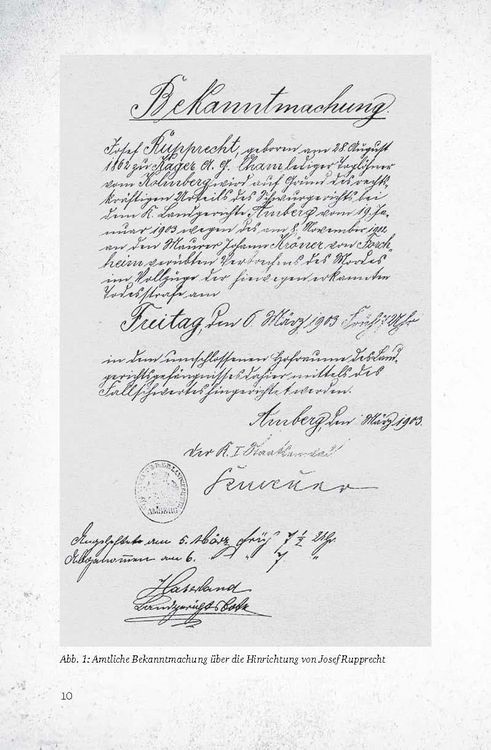 Bekanntmachung
Josef Rupprecht, geboren am 28. August
1862 zu Kager A. G. Cham, lediger Taglöhner
vom Kolmberg, wird auf Grund des rechts-
kräftigen Urteils des Schwurgerichts bei
dem K. Landgerichte Amberg vom 19. Ja-
nuar 1903 wegen des am 8. November 1902
an dem Maurer Johann Kröner von
heim verübten Verbrechens des Mordes
im Vollzuge der hiewegen erkannten
Todesstrafe am
Freitag, den 6. März 1903 Früh 7 Uhr
in dem umschlossenen Hofraume des Land-
gerichtsgefängnisses dahier mittels des
Fallschwertes hingerichtet werden.
Amberg, den März 1903.
Der K. I. Staatsanwalt
AMBERG
Angeheftet am 5. März früh 7 ½ Uhr
Abgenommen am 6. " " 7 "
Haberland
Landgerichtsbote
Abb. 1: Amtliche Bekanntmachung über die Hinrichtung von Josef Rupprecht
10